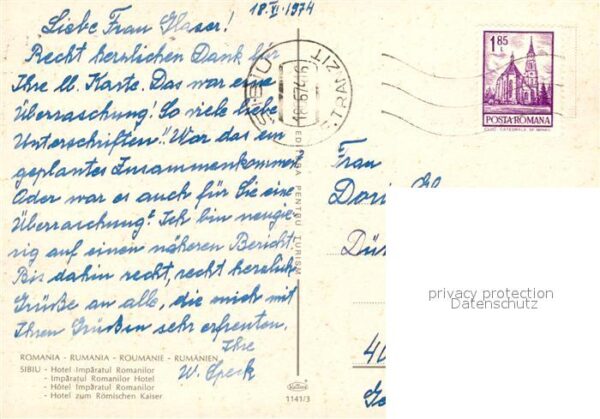 18.VI.1974
Liebe Frau Glaser!
Recht herzlichen Dank für
Ihre lb. Karte. Das war eine
Überraschung! So viele liebe
Unterschriften!! War das ein
geplantes Zusammenkommen?
Oder war es auch für Sie eine
Überraschung? Ich bin neugie-
rig auf einen näheren Bericht.
Bis dahin recht, recht herzliche
Grüße an alle, die mich mit
Ihren Grüßen sehr erfreuten.
Ihre
W. Speck
ROMANIA - RUMANIA - ROUMANIE - RUMÄNIEN
SIBIU - Hotel Împăratul Romanilor
- Împăratul Romanilor Hotel
- Hôtel Împăratul Romanilor
- Hotel zum Römischen Kaiser
EDITURA PENTRU TURISM
1141/3
SIBIU
TRANZIT
1.85 L
POSTA ROMANA
Frau
Dür
privacy protection
Datenschutz